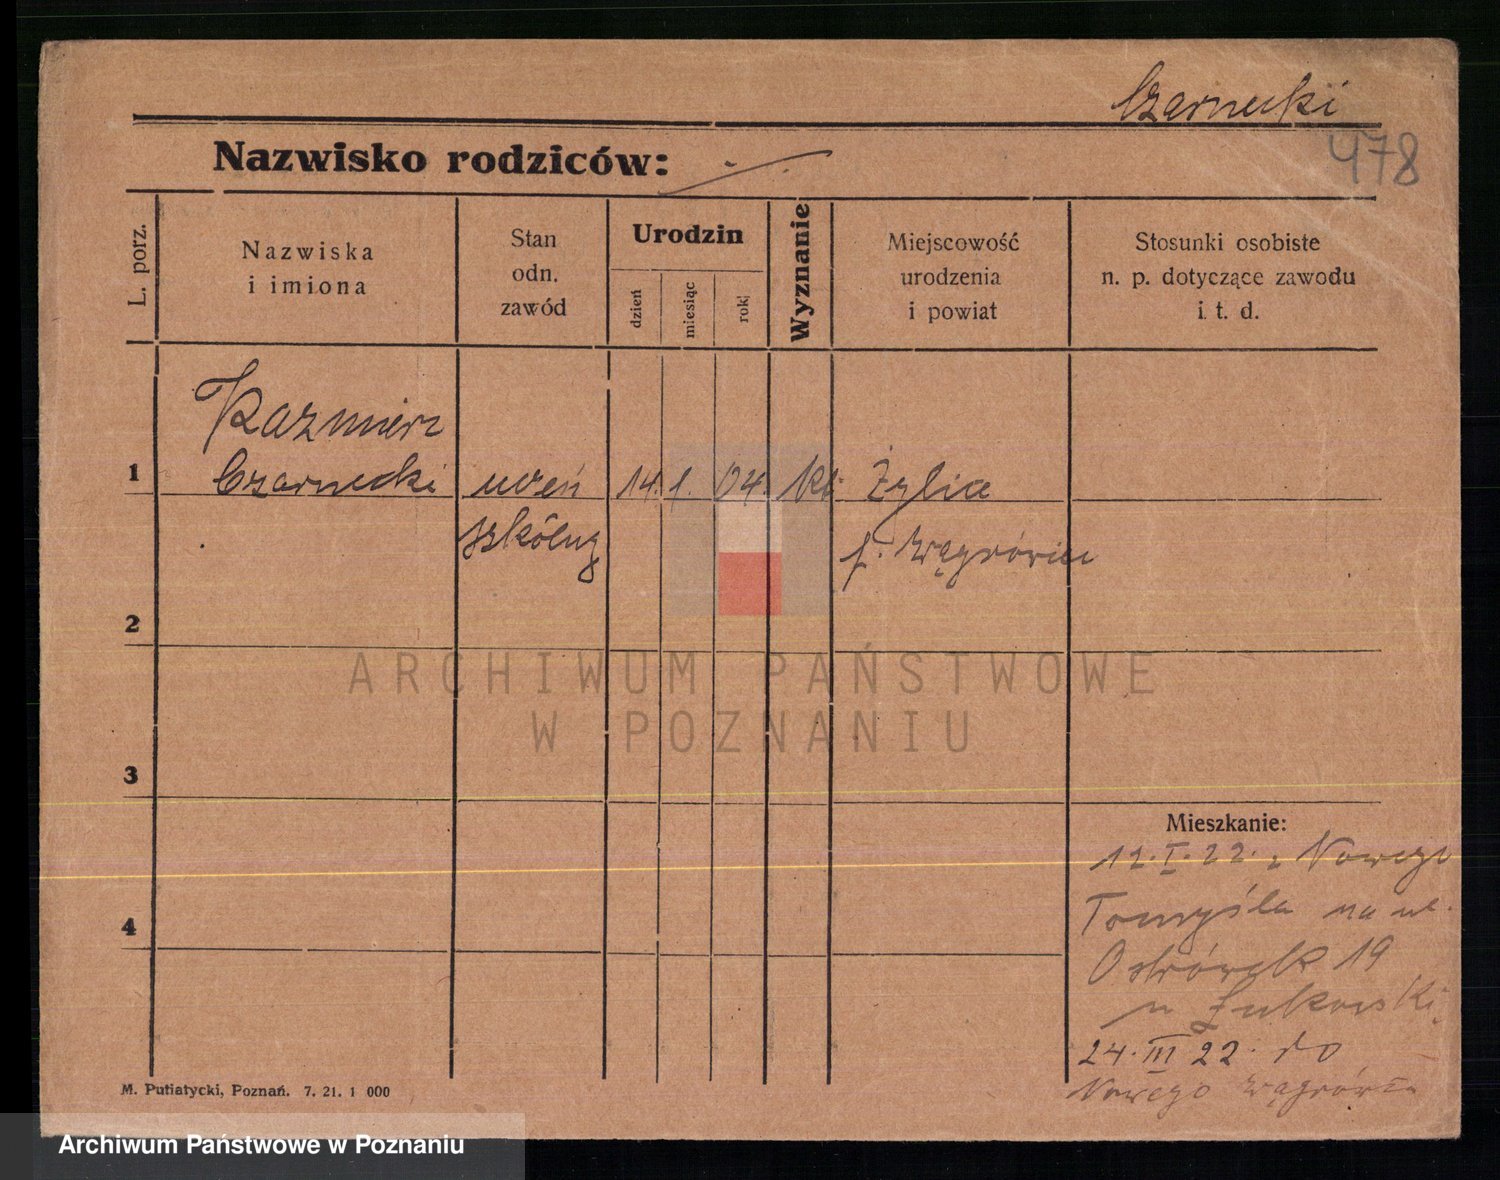 Czarnecki
478
Nazwisko rodziców:
L. porz.
Nazwiska
i imiona
Stan
odn.
zawód
Urodzin
dzień
miesiąc
rok
Wyznanie
Miejscowość
urodzenia
i powiat
Stosunki osobiste
n. p. dotyczące zawodu
i. t. d.
Kazmierz
1 Czarnecki uczeń 14. 1. 04. kt.
szkólny p. Wągrówiec
2
ARCHIWUM PAŃSTWOWE
W POZNANIU
3
Mieszkanie:
12.I.22. z Nowego
Tomyśla na ul.
4
Ostrówek 19
u Łukowski
24.III 22. do
Nowego
M. Putiatycki, Poznań. 7. 21. 1 000
Archiwum Państwowe w Poznaniu